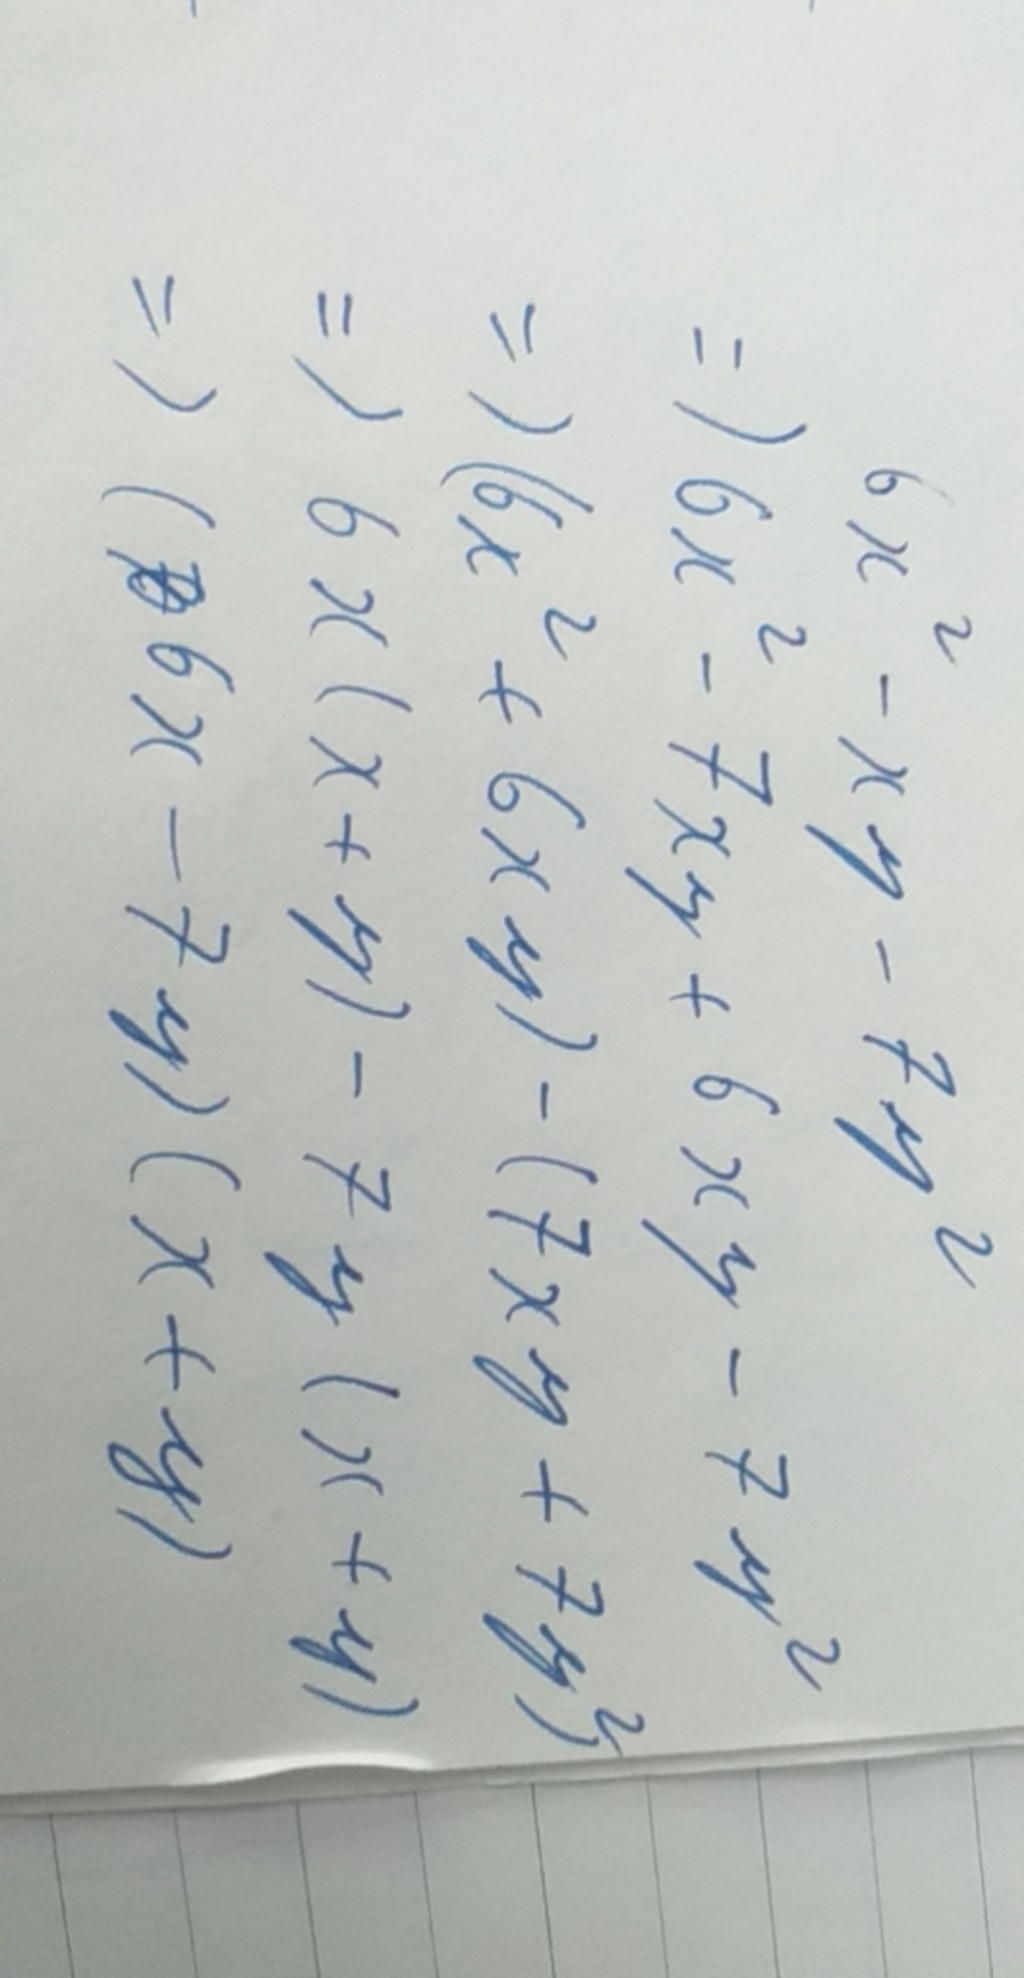 6x² - xy - 7y²
=) 6x² - 7xy + 6xy - 7y²
=) (6x² + 6xy) - (7xy + 7y²)
=) 6x(x + y) - 7y(x + y)
=) (6x - 7y)(x + y)